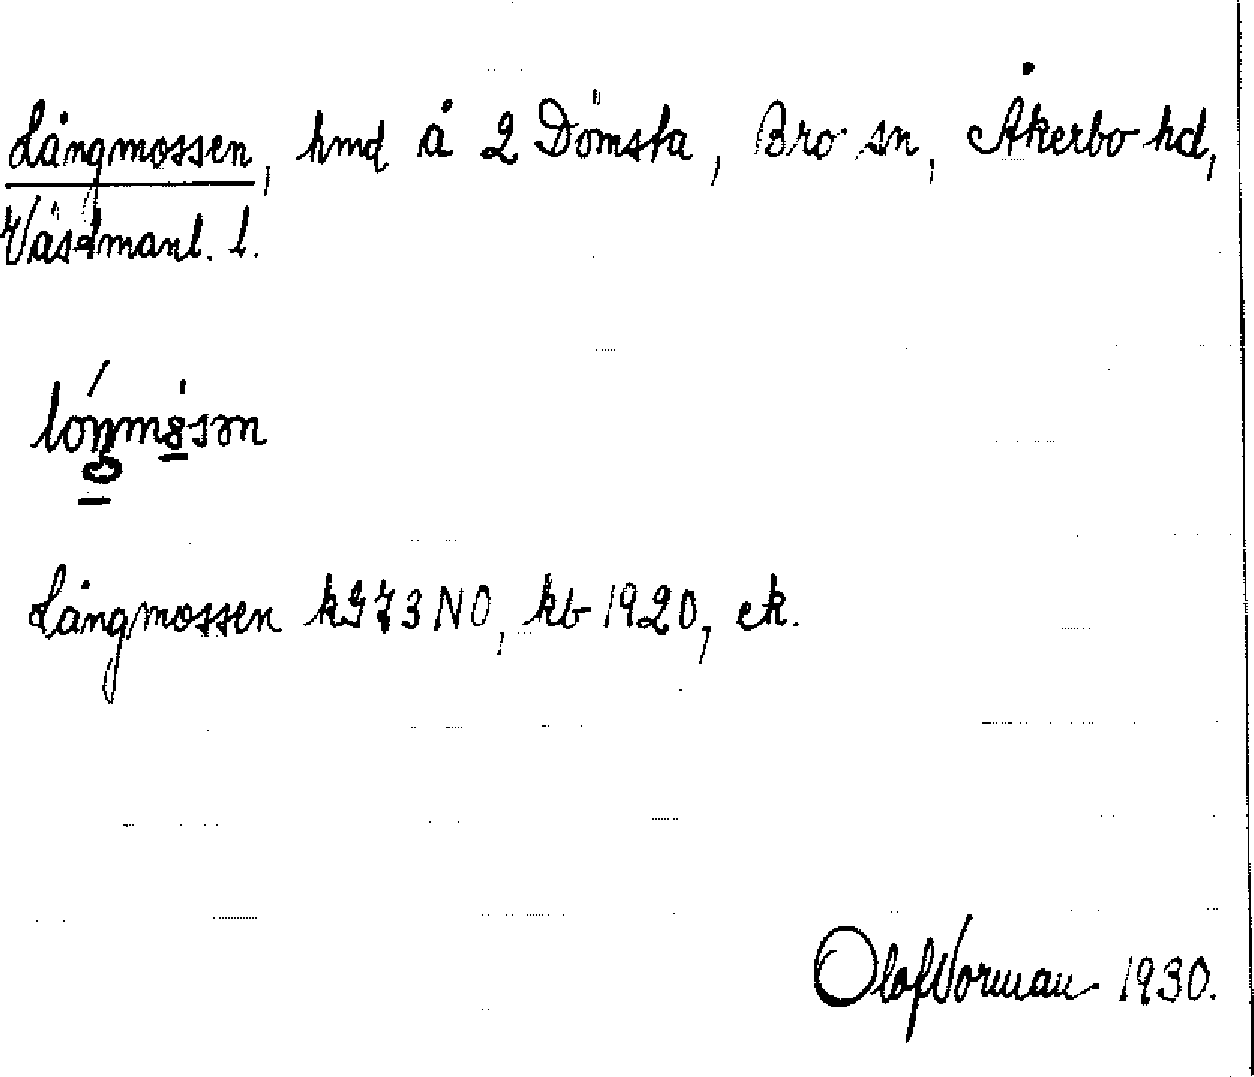 Långmossen, hmd å 2 Dömsta, Bro sn, Åkerbo hd,
Västmanl. l.
Långmossen k973NO, kb 1920, ek.
Olof Norman 1930.